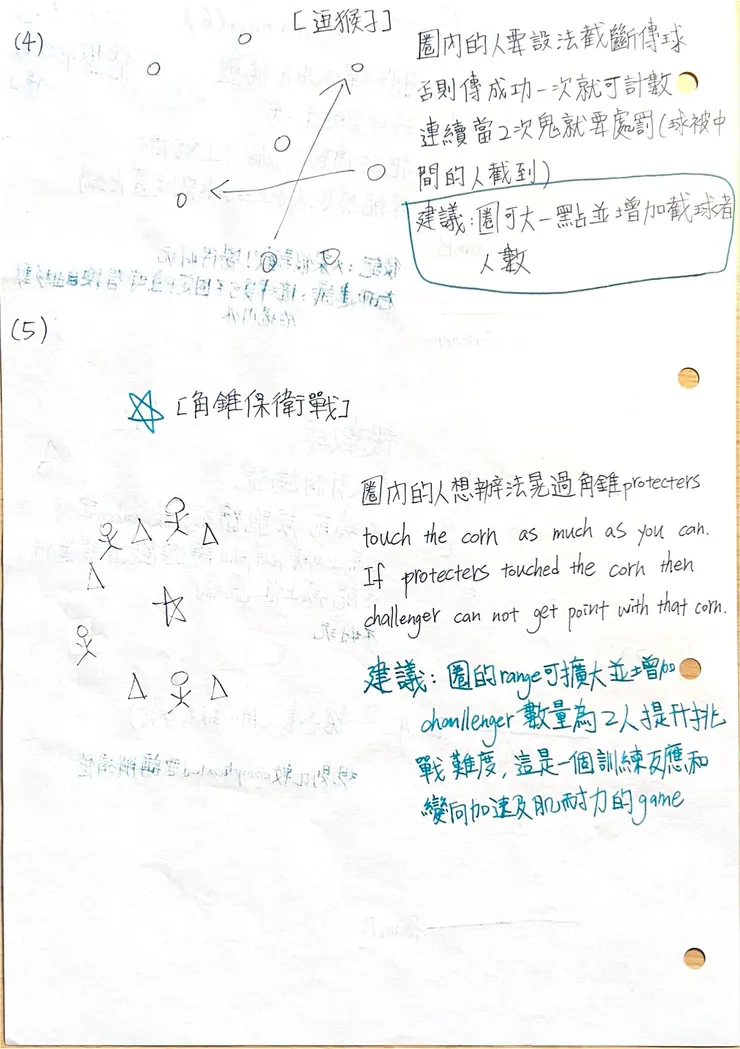 (4)
[逗猴子]
圈內的人要設法截斷傳球
否則傳成功一次就可計數
連續當2次鬼就要處罰(球被中
間的人截到)
建議:圈可大一點並增加截球者
人數
(5)
[角錐保衛戰]
圈內的人想辦法晃過角錐protecters
touch the corn as much as you can.
If protecters touched the corn then
challenger can not get point with that corn.
建議:圈的range可擴大並增加
chanllenger數量為2人提升挑
戰難度,這是一個訓練反應和
變向加速及肌耐力的game